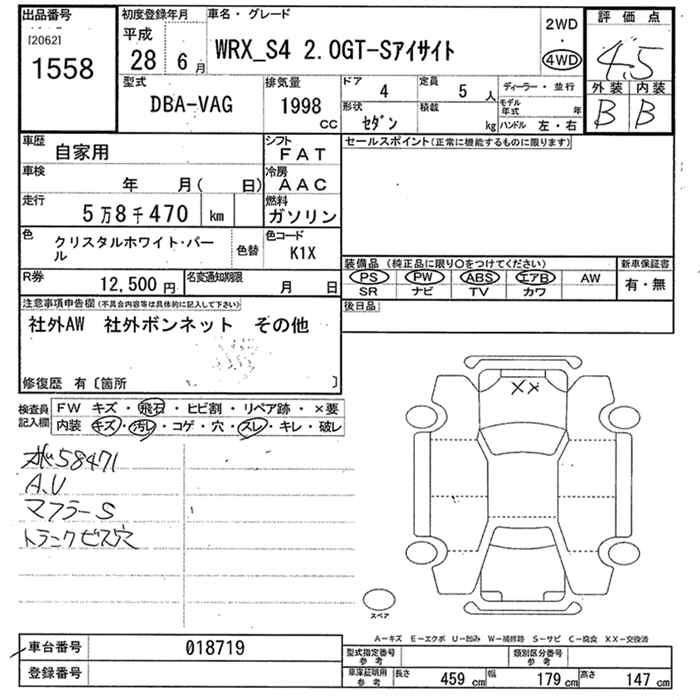 出品番号
[2062]
1558
初度登録年月
平成
28 6月
車名・グレード
WRX_S4 2.0GT-Sアイサイト
2WD
・
4WD
評価点
4.5
外装 内装
B B
型式
DBA-VAG
排気量
1998
CC
ドア
4
定員
5 人
形状
セダン
積載
kg
ディーラー・並行
モデル年式 年
ハンドル 左・右
車歴
自家用
シフト
FAT
車検
年 月( 日)
冷房
AAC
走行
5万8千470 km
燃料
ガソリン
色
クリスタルホワイト・パール
色替
色コード
K1X
R券
12,500円
名変通知期限
月 日
セールスポイント(正常に機能するものに限ります)
装備品 (純正品に限り○をつけてください)
PS PW ABS エアB AW
SR ナビ TV カワ
新車保証書
有・無
後日品
注意事項申告欄(不具合内容等は具体的に記入して下さい)
社外AW 社外ボンネット その他
修復歴 有〔箇所 〕
検査員記入欄
FW キズ・飛石・ヒビ割・リペア跡・×要
内装 キズ・汚レ・コゲ・穴・スレ・キレ・破レ
58471
A,U
マフラーS
トランクビス穴
XX
スペア
A-キズ E-エクボ U-凹み W-補修跡 S-サビ C-腐食 XX-交換済
車台番号
018719
登録番号
型式指定番号
参考
類別区分番号
参考
車庫証明用
参考
長さ
459 cm
幅
179 cm
高さ
147 cm